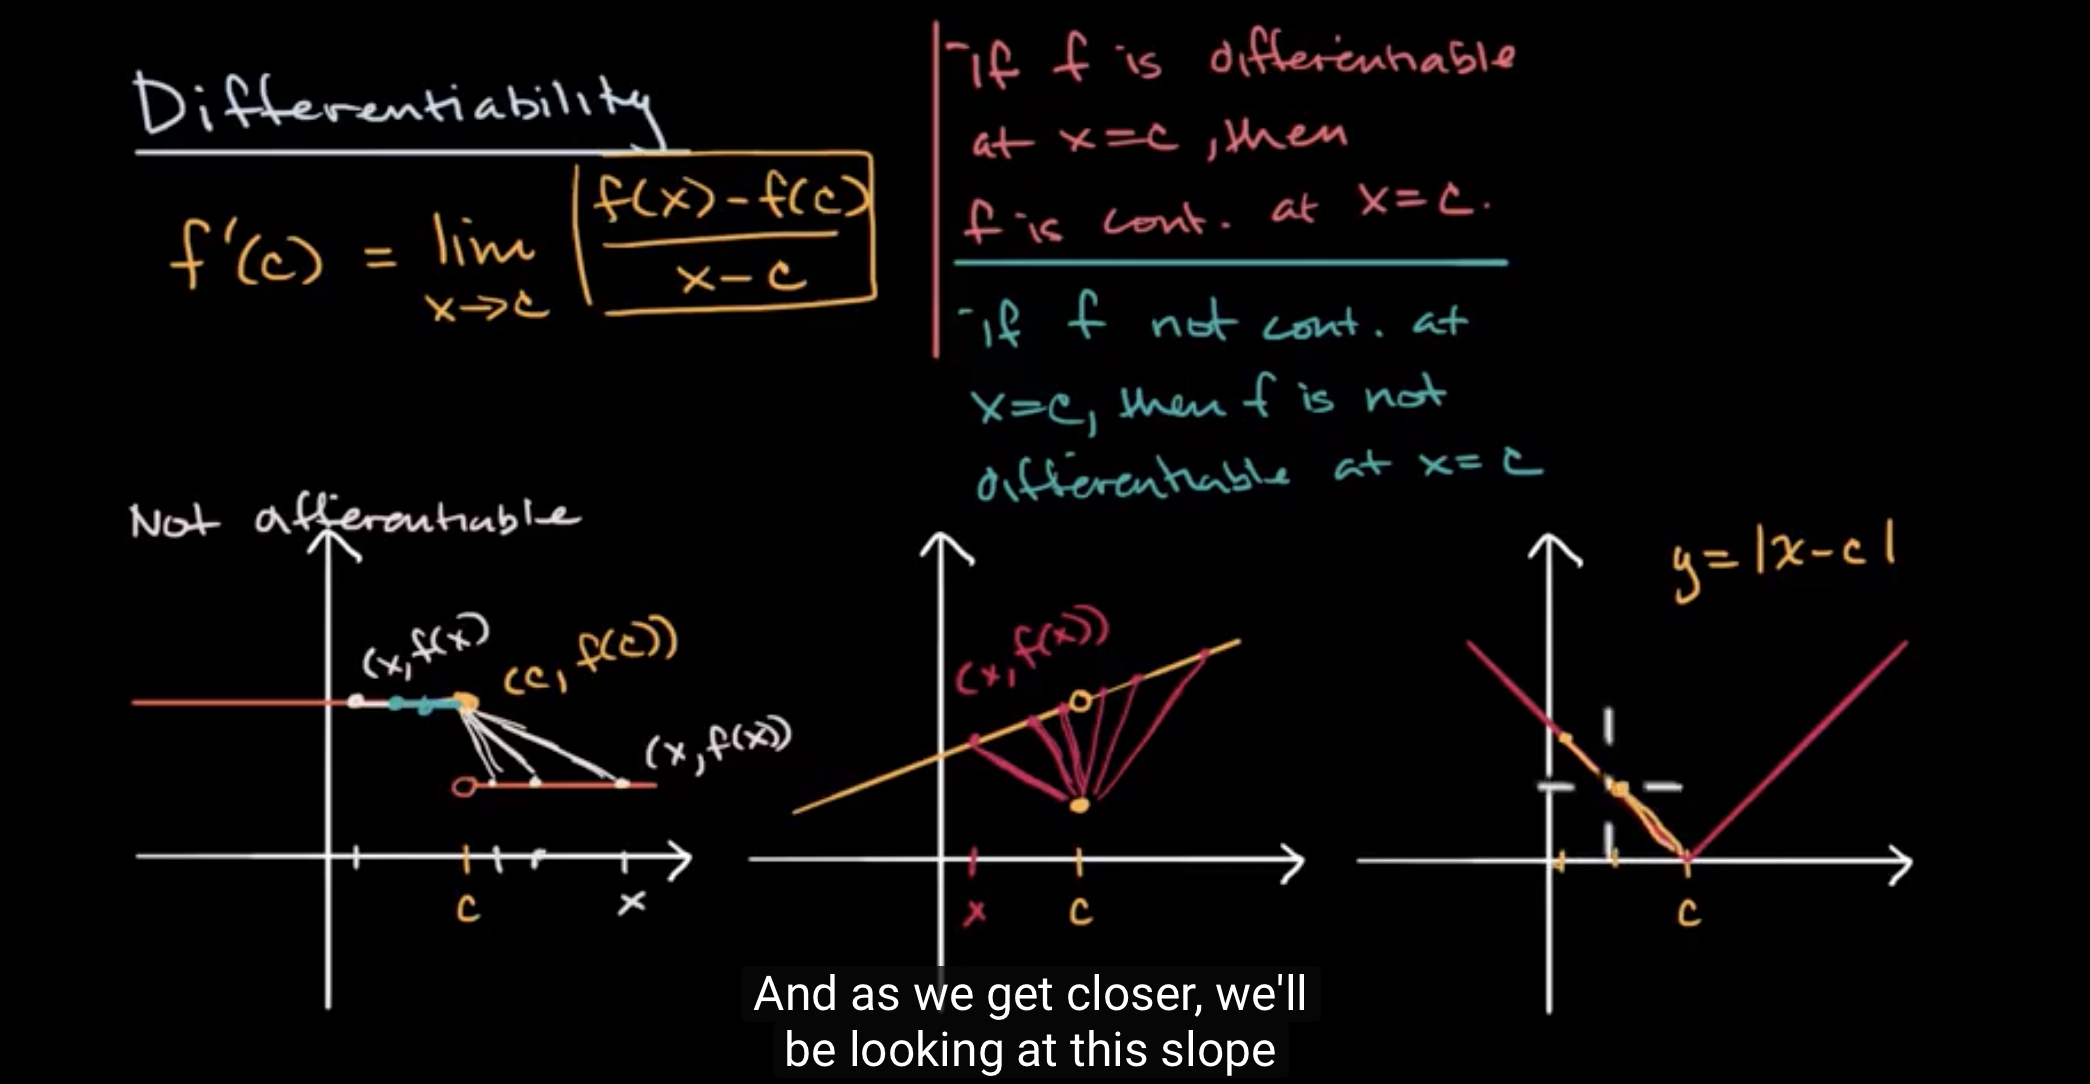 Differentiability
f'(c) = lim x→c f(x)-f(c) / x-c
-if f is differentiable
at x=c, then
f is cont. at x=c.
-if f not cont. at
x=c, then f is not
differentiable at x=c
Not differentiable
(x, f(x))
(c, f(c))
(x, f(x))
c
x
(x, f(x))
x
c
y=|x-c|
c
And as we get closer, we'll
be looking at this slope